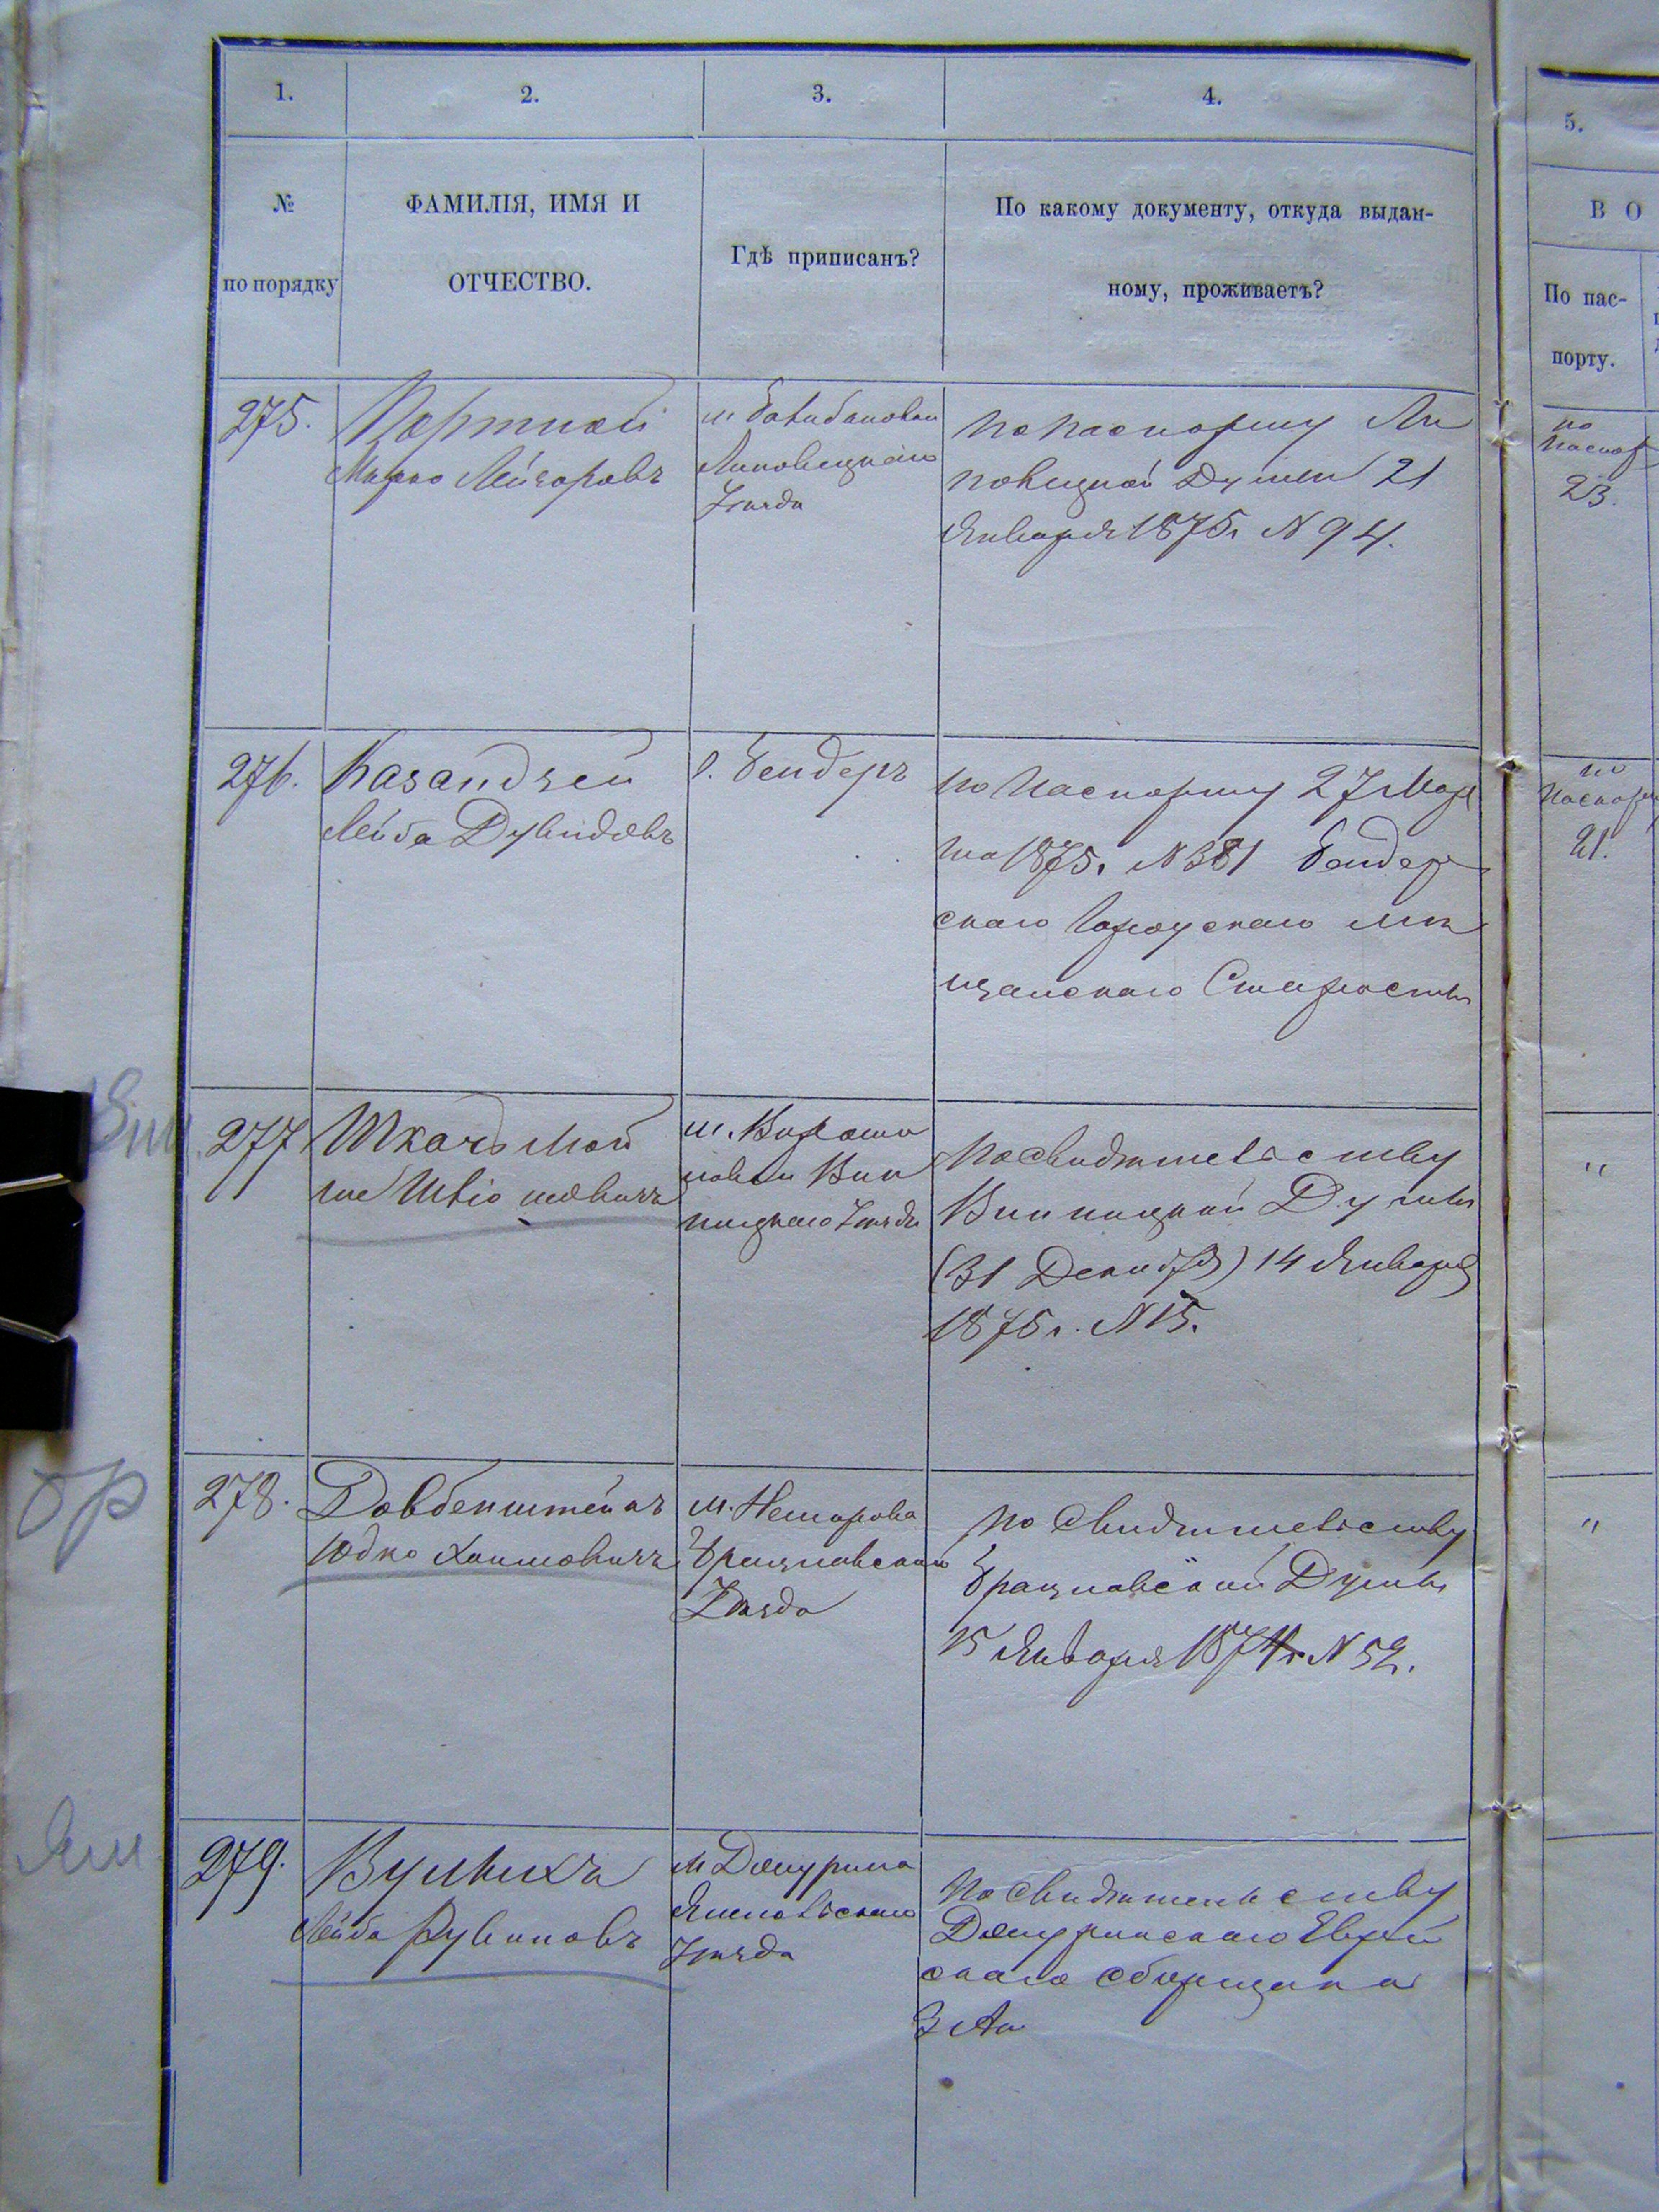 1.
2.
3.
4.
5.
№
по порядку
ФАМИЛІЯ, ИМЯ И
ОТЧЕСТВО.
Гдѣ приписанъ?
По какому документу, откуда выдан-
ному, проживаетъ?
В О
По пас-
порту.
275.
Портной
Мирко Лейзоровъ
м.
Липовецкаго
Уѣзда
По паспорту Ли
повецкой Думы 21
Января 1875 г N 94.
по
паспор
23.
276.
Казандзей
Лейба Дувидовъ
г. Бендеръ
По паспорту 27 Мар
та 1875 г. N 381 Бендер
скаго Городскаго мѣ
щанскаго Старосты
по
паспор
21.
Вин.
277
Ткачъ Мой
ше Шліомовичъ
м. Вороно
вицы Вин
ницкаго Уѣзда
По свидѣтельству
Винницкой Думы
(31 Декабря) 14 Января
1875 г. N 15.
"
бр
278.
Довбенштейнъ
Юдко Хаимовичъ
м. Немирова
Брацлавскаго
Уѣзда
По свидѣтельству
Брацлавской Думы
15 Января 1874 г N 52.
"
Ям
279.
Вульихъ
Лейба Рувиновъ
м Джурина
Ямпольскаго
Уѣзда
По свидѣтельству
Джуринскаго Еврей
скаго сборщика